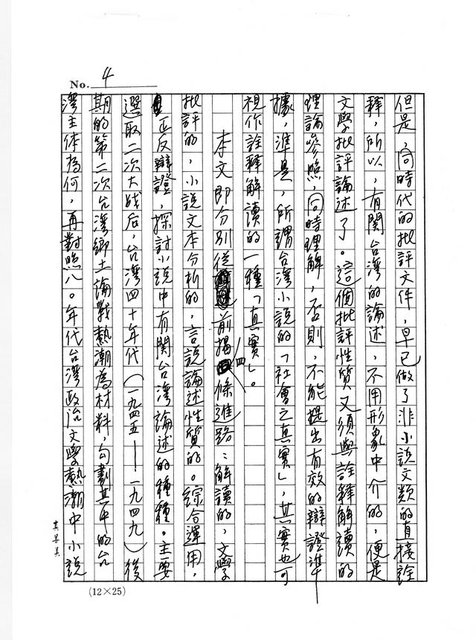 No. 4
但是，同時代的批評文件，早已做了非小說文類的直接詮
釋，所以，有關台灣的論述，不用形象中介的，便是
文學批評論述了。這個批評性質又須與詮釋解讀的
理論參照，同時理解，否則，不能提出有效的辯證準
據，準是，所謂台灣小說的「社會之真實」，其實也可
視作詮釋解讀的一種「真實」。
本文即分別從前揭四條進路：解讀的，文學
批評的，小說文本分析的，言說論述性質的。綜合運用，
正反辯證，探討小說中有關台灣論述的種種。主要
選取二次大战后，台灣四十年代（一九四五——一九四九）後
期的第二次台灣鄉土論戰熱潮為材料，勾劃其中的台
灣主体為何，再對照八〇年代台灣政治文學熱潮中小說
(12×25)